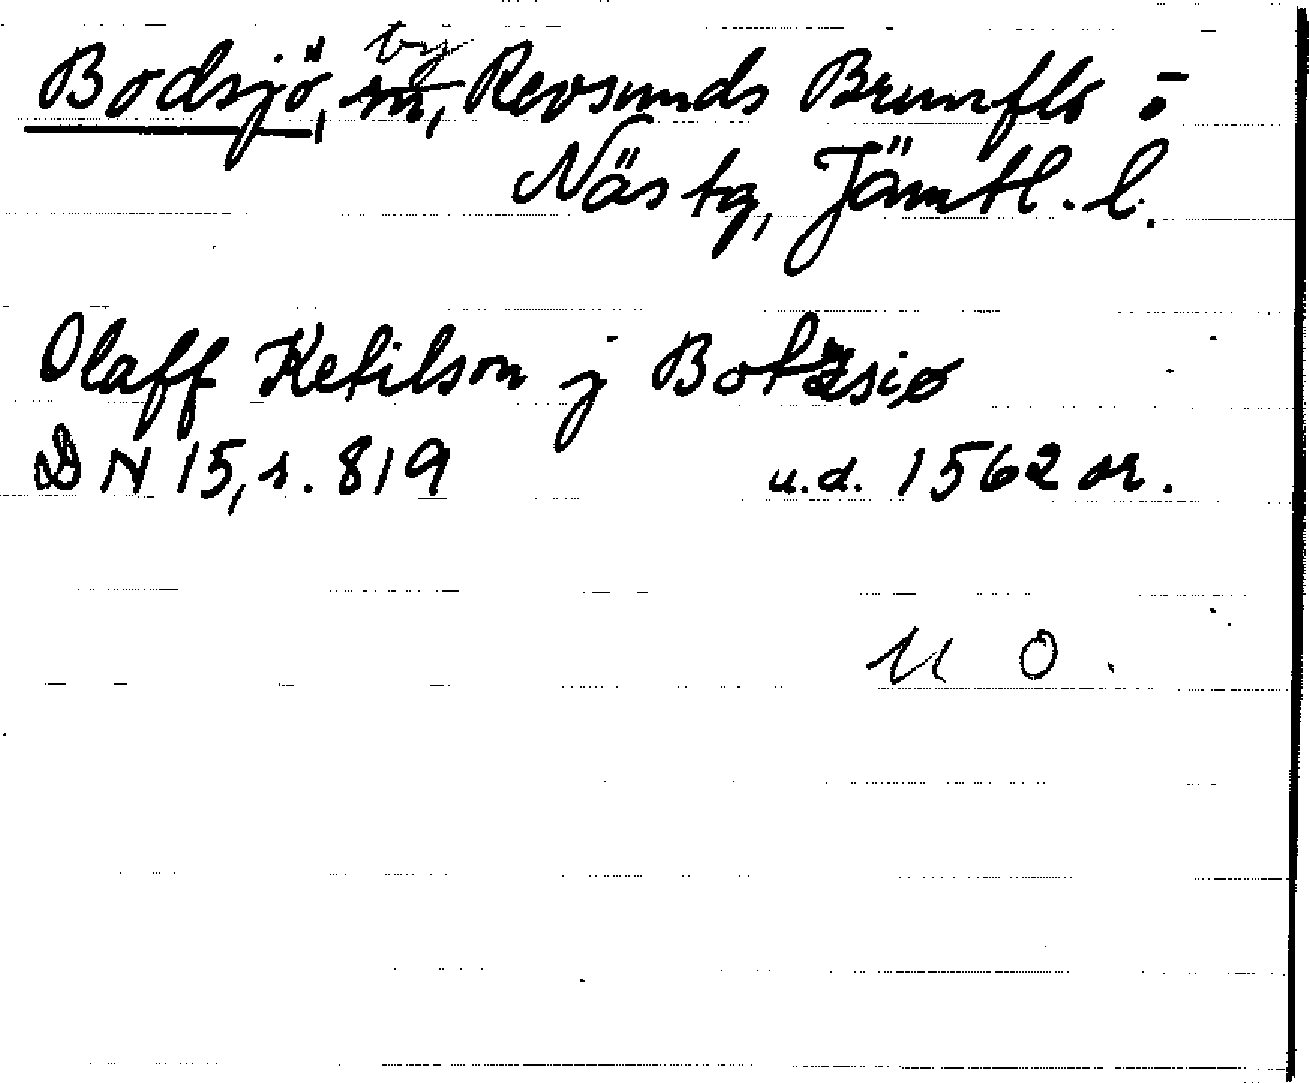 Bodsjö, by, Revsunds Brunflo o
Näs tg, Jämtl. l.
Olaff Ketilson j Botzsiø
DN 15, s. 819 u.d. 1562 or.
U O.